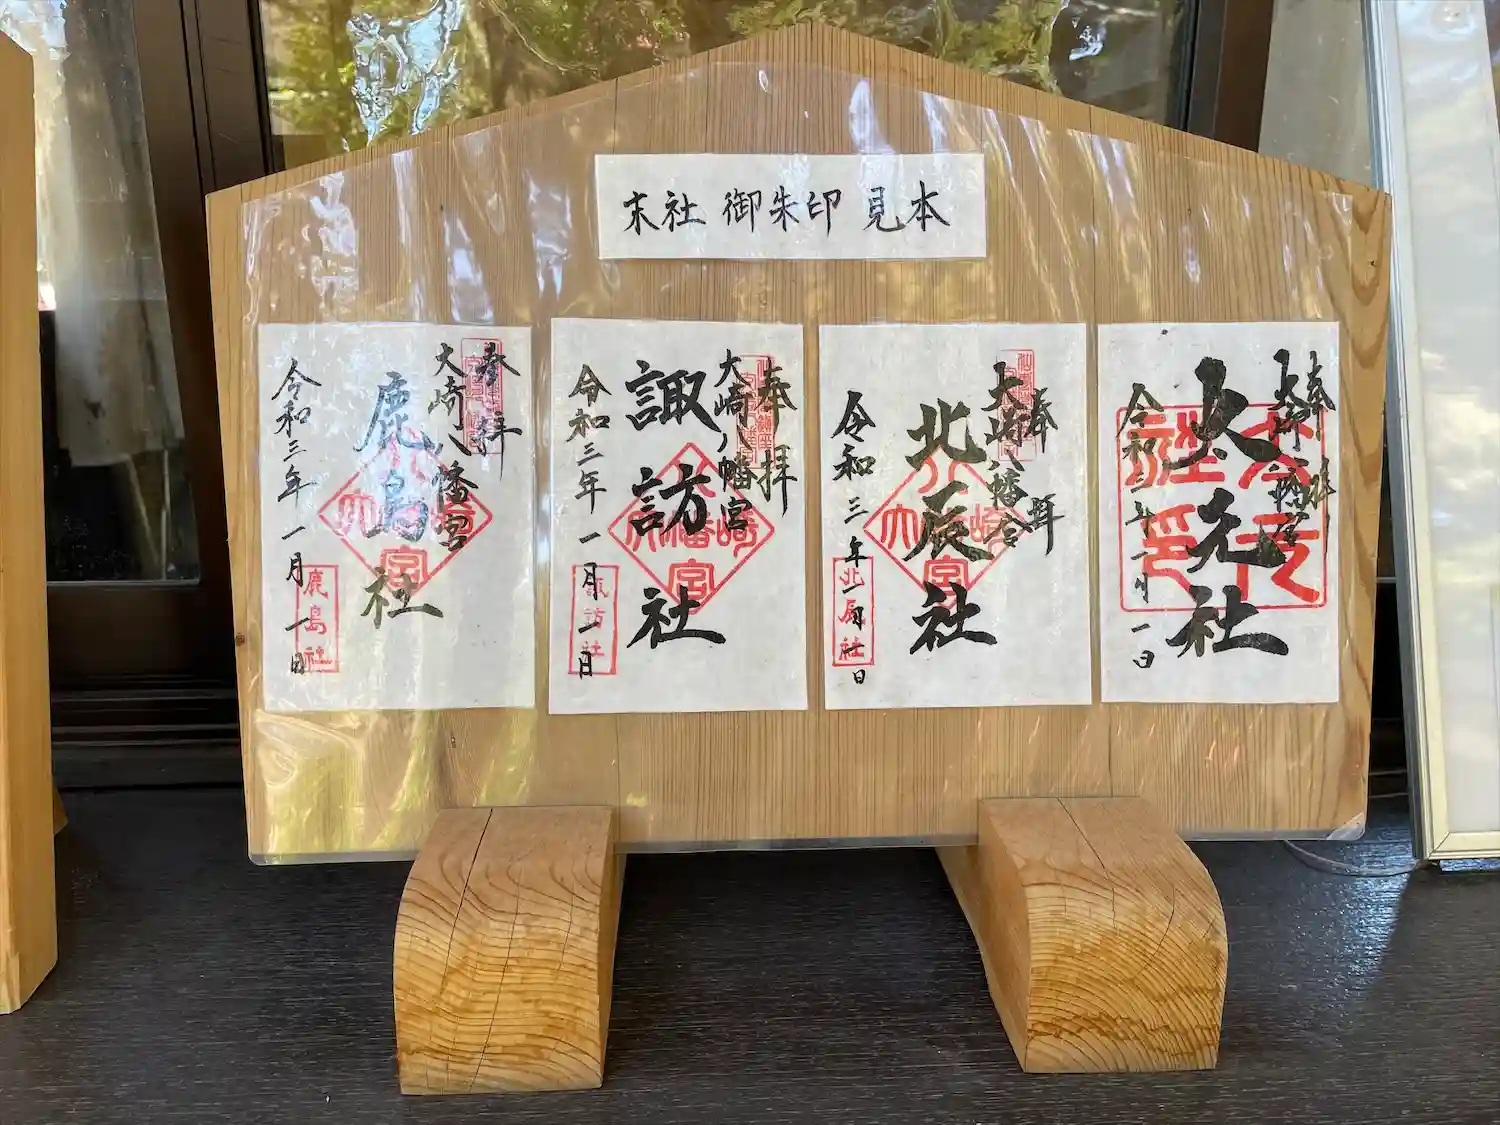 末社 御朱印 見本
奉拝
大崎八幡宮
久元社
令和三年一月一日
奉拝
大崎八幡宮
北辰社
令和三年一月一日
北辰社
奉拝
大崎八幡宮
諏訪社
令和三年一月一日
諏訪社
大崎八幡宮
奉拝
大崎八幡宮
鹿島社
令和三年一月一日
鹿島社